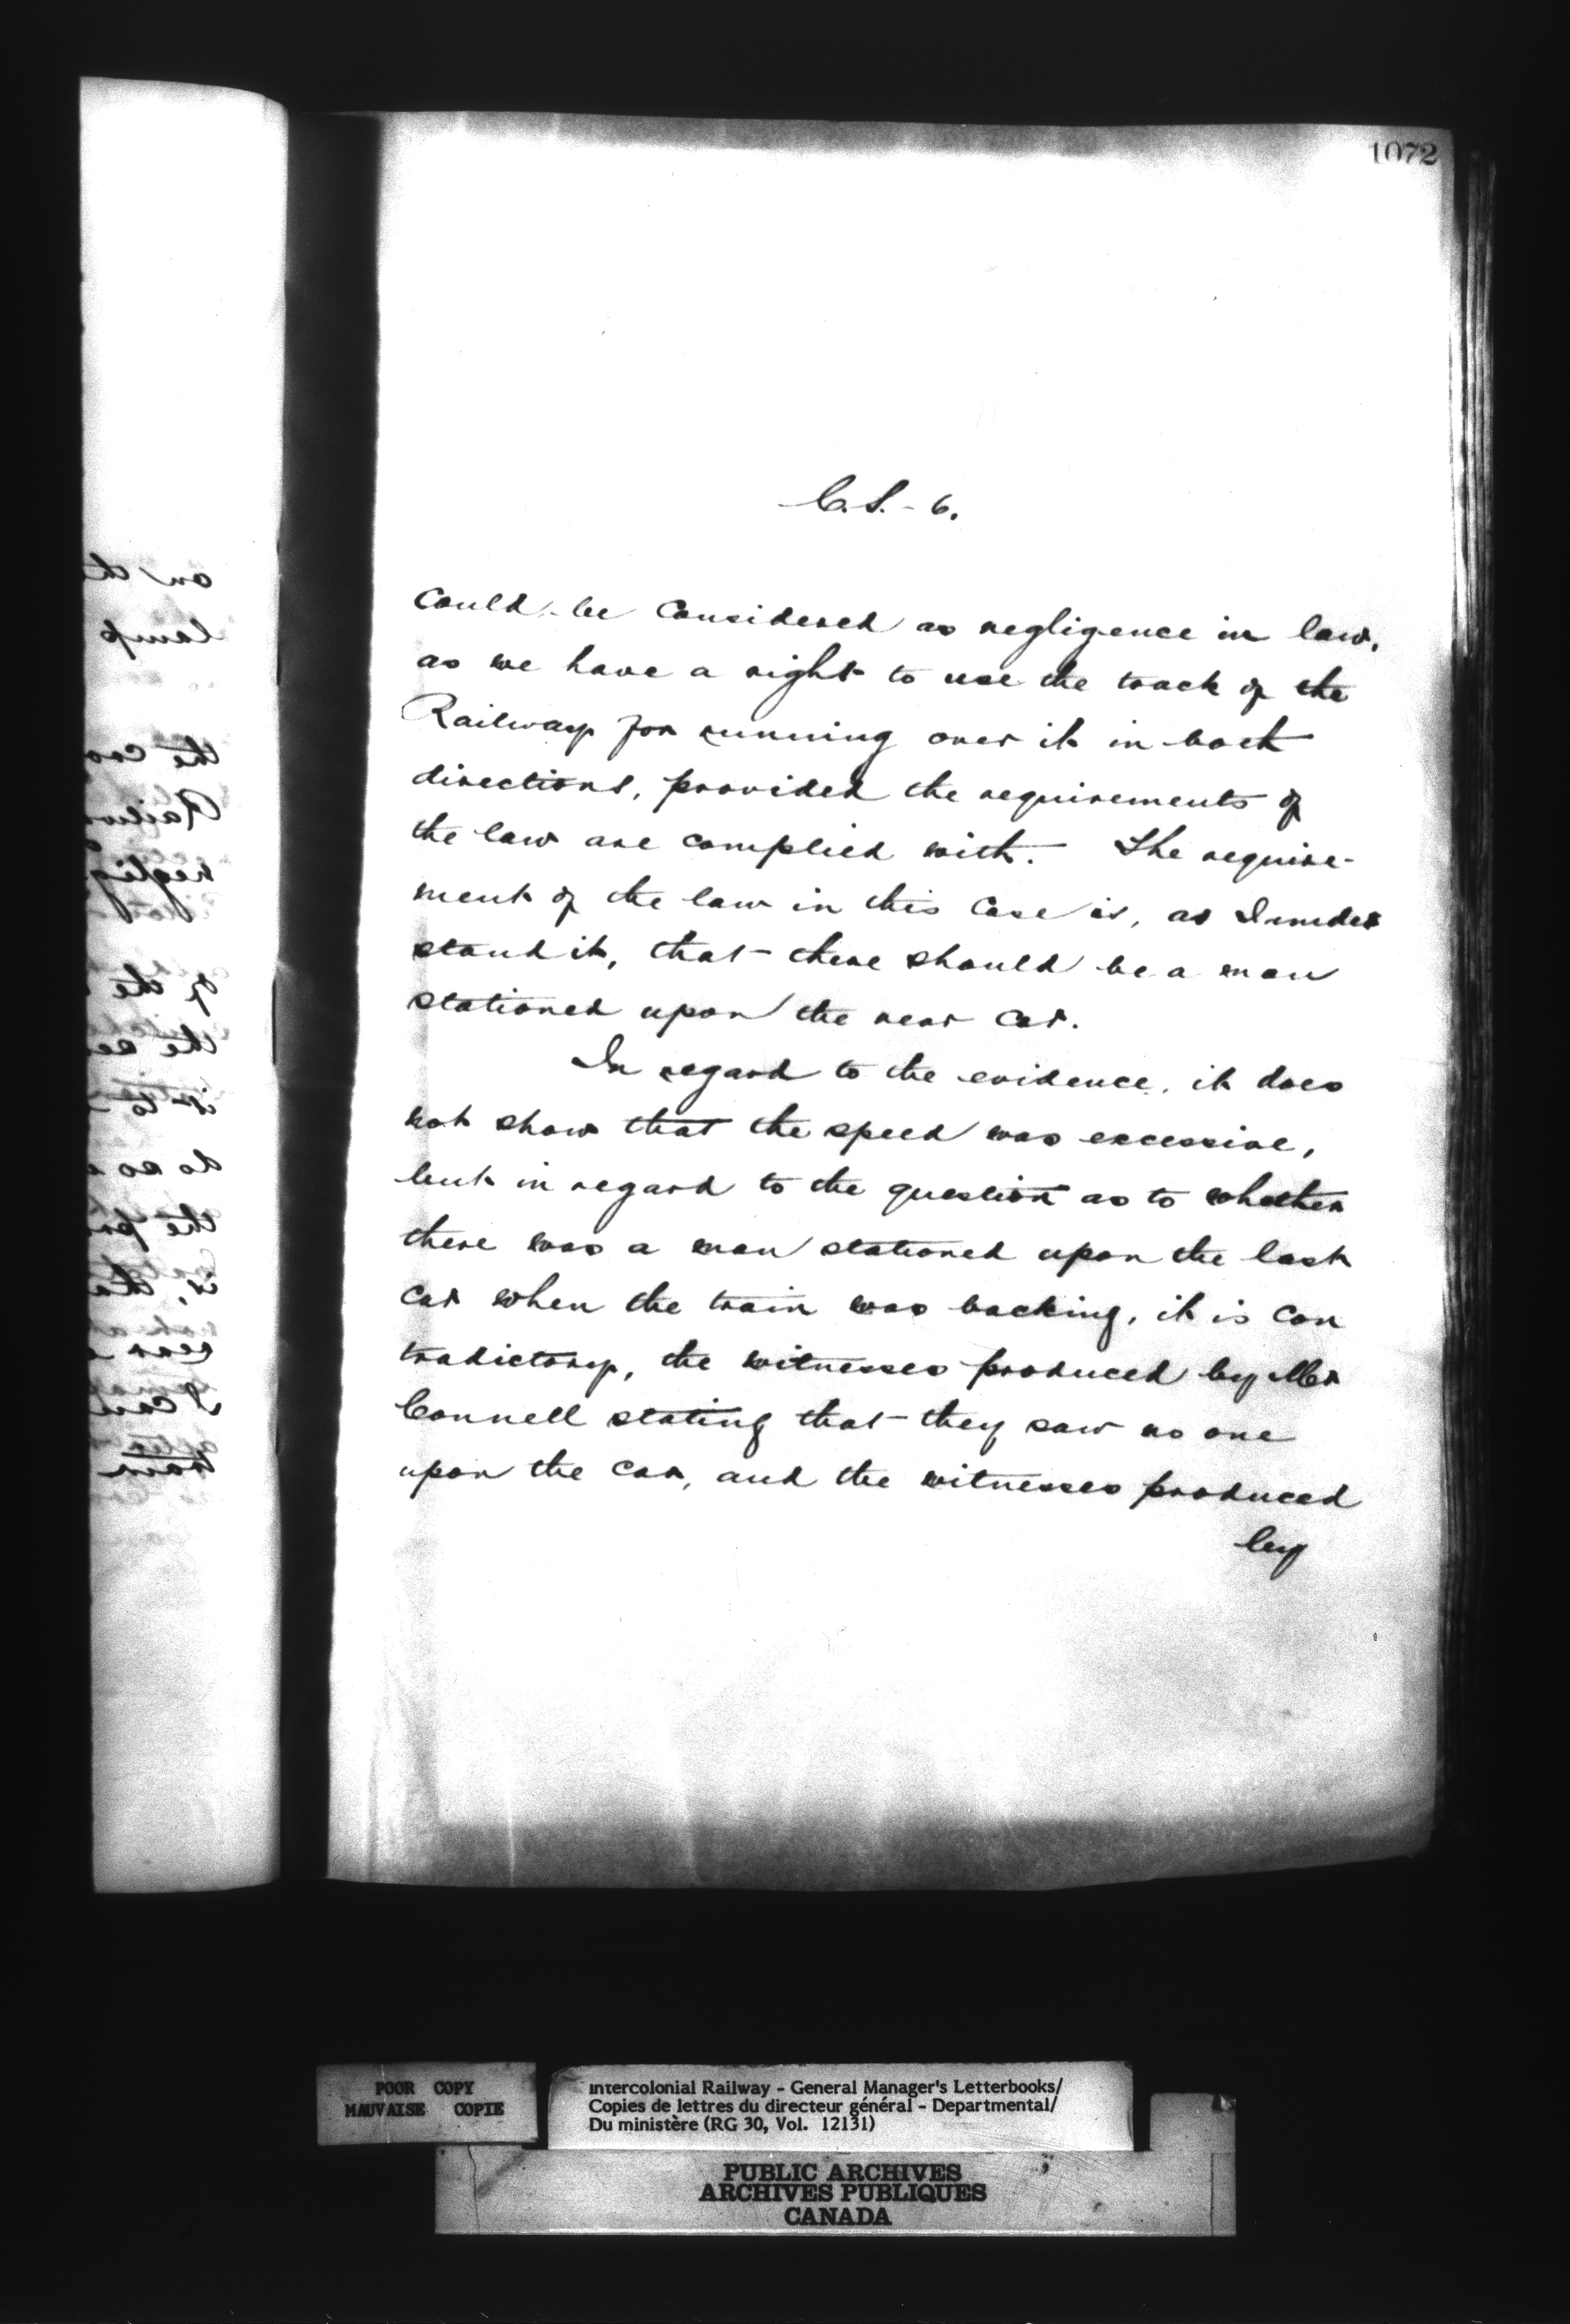 1072
C.S. - 6.
could be considered as negligence in law,
as we have a right to use the track of the
Railway for running over it in both
directions, provided the requirements of
the law are complied with. The require-
ment of the law in this case is, as I under
stand it, that there should be a man
stationed upon the rear car.
In regard to the evidence, it does
not show that the speed was excessive,
but in regard to the question as to whether
there was a man stationed upon the last
car when the train was backing, it is con
tradictory, the witnesses produced by Mr
Connell stating that they saw no one
upon the car, and the witnesses produced
by
POOR COPY
MAUVAISE COPIE
Intercolonial Railway - General Manager's Letterbooks/
Copies de lettres du directeur général - Departmental/
Du ministère (RG 30, Vol. 12131)
PUBLIC ARCHIVES
ARCHIVES PUBLIQUES
CANADA